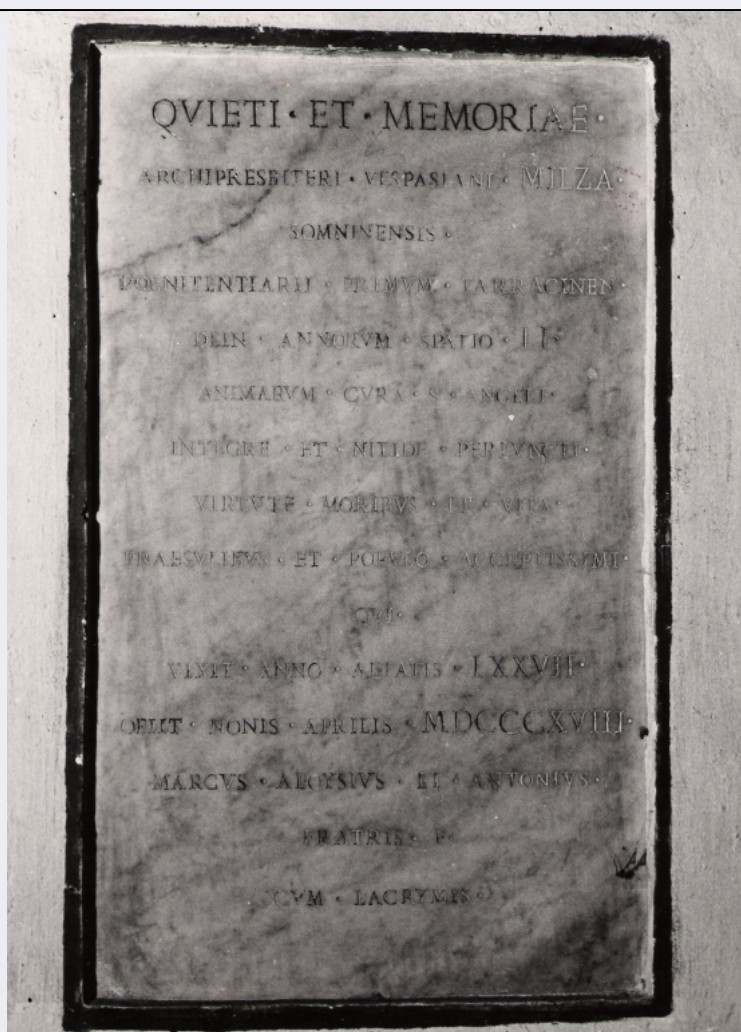 QVIETI · ET · MEMORIAE ·
ARCHIPRESBITERI · VESPASIANI · MILZA ·
SOMNINENSIS ·
POENITENTIARII · PRIMVM · TARRACINEN ·
DEIN · ANNORVM · SPATIO · LI ·
ANIMARVM · CVRA · S · ANGELI ·
INTEGRE · ET · NITIDE · PERFVNCTI ·
VIRTVTE · MORIBVS · ET · VITA ·
PRAESVLIBVS · ET · POPVLO · ACCEPTISSIMI ·
QVI ·
VIXIT · ANNO · AETATIS · LXXVII ·
OBIIT · NONIS · APRILIS · MDCCCXVIII ·
MARCVS · ALOYSIVS · ET · ANTONIVS ·
FRATRIS · F ·
CVM · LACRYMIS ·